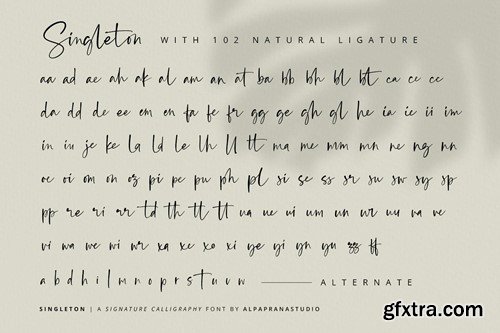 Singleton WITH 102 NATURAL LIGATURE
aa ad ae ah ak al am an at ba bb bh bl bt ca cc ce
da dd de ee em en fa fe fr gg ge gh gl he ia ie ii im
in iu je ke la ld le lh ll tt ma me mm mn ne ng nn
oe oi om on os pi pe pu ph pl si se ss sr su sw sy sp
pp re ri rr td th tt tl ua ue ui um un ur uu va ve
vi wa we wi wr xa xe xo xi ye yi yn yu zz ff
a b d h i l m n o p r s t u v w ALTERNATE
SINGLETON | A SIGNATURE CALLIGRAPHY FONT BY ALPAPRANASTUDIO
gfxtra.com